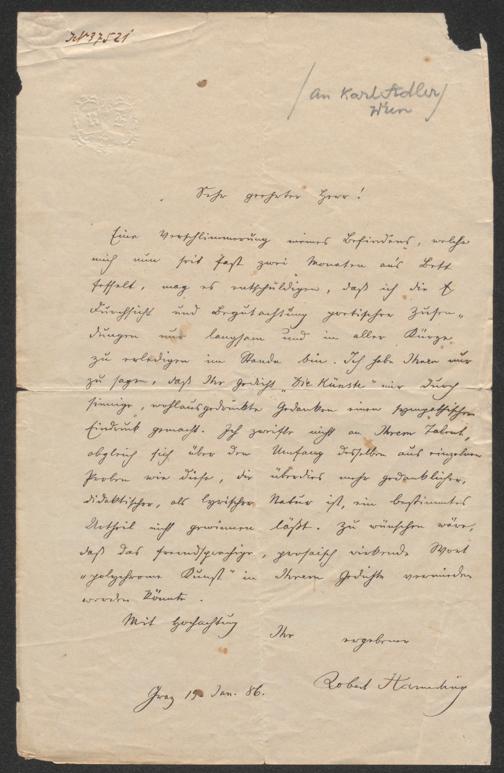 N 37521
/an Karl Adler/
Wien
Sehr geehrter Herr!
Eine Verschlimmerung meines Befindens, welche
mich nun seit fast zwei Monaten ans Bett
fesselt, mag es entschuldigen, daß ich die
Durchsicht und Begutachtung poetischer Zusen-
dungen nur langsam und in aller Kürze
zu erledigen im Stande bin. Ich habe Ihnen nur
zu sagen, daß Ihr Gedicht "Die Künste" mir durch
sinnige, wohlausgedrückte Gedanken einen sympathischen
Eindruck gemacht. Ich zweifle nicht an Ihrem Talent,
obgleich sich über den Umfang desselben aus einzelnen
Proben wie diese, die überdies mehr gedanklicher,
didaktischer, als lyrischer Natur ist, ein bestimmtes
Urtheil nicht gewinnen läßt. Zu wünschen wäre,
daß das fremdsprachige, prosaisch wirkende Wort
"polychrome Kunst" in Ihrem Gedichte vermieden
werden könnte.
Mit Hochachtung
Ihr ergebener
Robert Hamerling
Graz 19 Jan. 86.